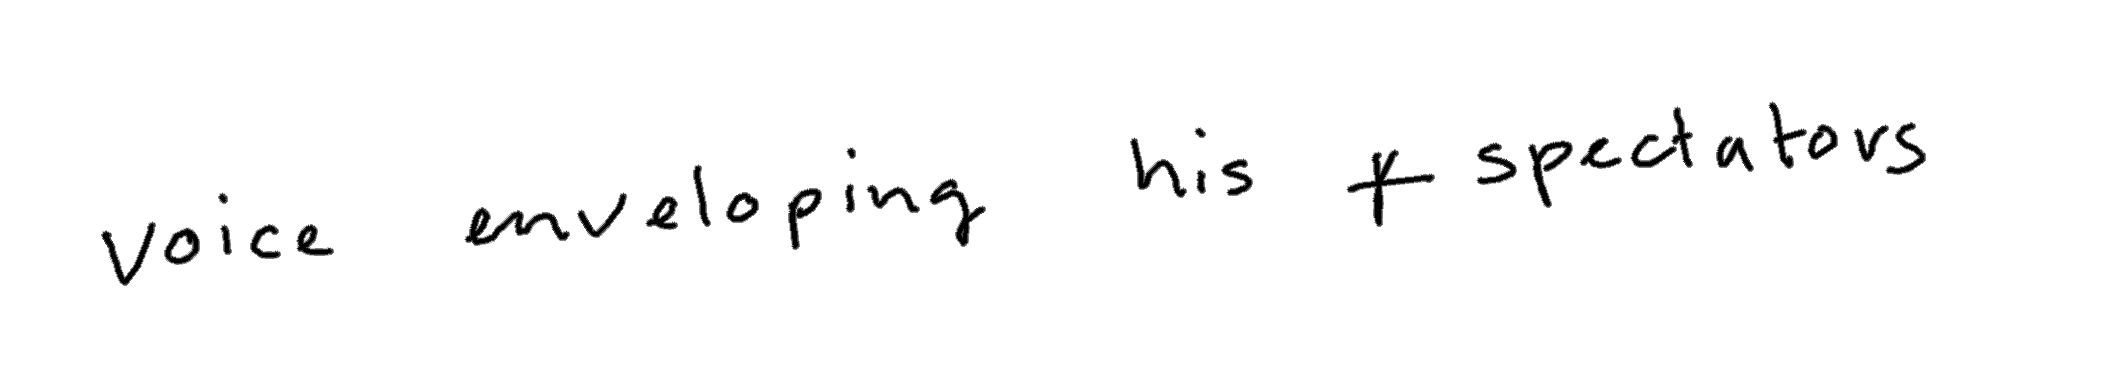 voice enveloping his spectators